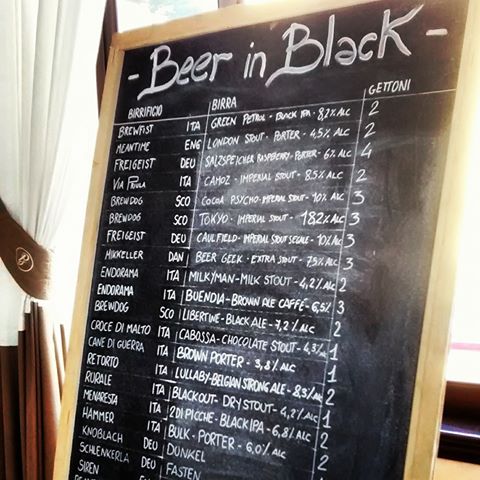 - Beer in Black -
BIRRIFICIO BIRRA GETTONI
BREWFIST ITA GREEN PETROL - BLACK IPA - 8,2% ALC 2
MEANTIME ENG LONDON STOUT - PORTER - 4,5% ALC 2
FREIGEIST DEU SALZSPEICHER RASPBERRY-PORTER - 6% ALC 4
VIA PRIULA ITA CAMOZ - IMPERIAL STOUT - 8.5% ALC 2
BREWDOG SCO COCOA PSYCHO-IMPERIAL STOUT - 10% ALC 3
BREWDOG SCO TOKYO - IMPERIAL STOUT - 18.2% ALC 3
FREIGEIST DEU CAULFIELD - IMPERIAL STOUT SEGALE - 10% ALC 3
MIKKELLER DAN BEER GEEK - EXTRA STOUT - 7,5% ALC 3
ENDORAMA ITA MILKYMAN - MILK STOUT - 4,2% ALC 2
ENDORAMA ITA BUENDIA - BROWN ALE CAFFÉ - 6,5% 3
BREWDOG SCO LIBERTINE - BLACK ALE - 7,2% ALC 2
CROCE DI MALTO ITA CABOSSA - CHOCOLATE STOUT - 4,3% 1
CANE DI GUERRA ITA BROWN PORTER - 3,8% ALC 1
RETORTO ITA LULLABY - BELGIAN STRONG ALE - 8,3% 2
RURALE ITA BLACKOUT - DRY STOUT - 4,2% ALC 1
MENARESTA ITA 2 DI PICCHE - BLACK IPA - 6,8% ALC 1
HAMMER ITA BULK - PORTER - 6,0% ALC 2
KNOBLACH DEU DUNKEL
SCHLENKERLA DEU FASTEN
SIREN